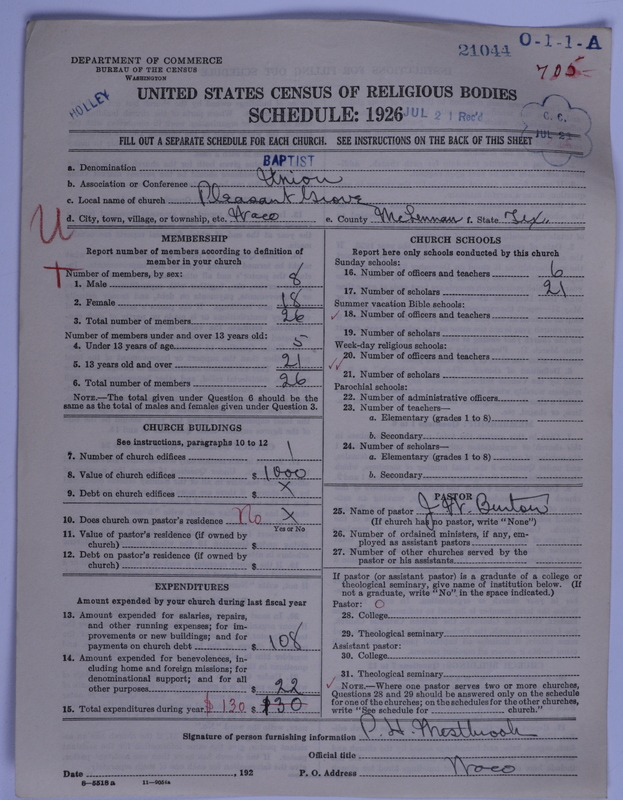 21044 O-1-1-A
DEPARTMENT OF COMMERCE
BUREAU OF THE CENSUS
WASHINGTON
705
HOLLEY
UNITED STATES CENSUS OF RELIGIOUS BODIES
SCHEDULE: 1926 JUL 21 Rec'd
C. C.
JUL 22
FILL OUT A SEPARATE SCHEDULE FOR EACH CHURCH. SEE INSTRUCTIONS ON THE BACK OF THIS SHEET
a. Denomination BAPTIST
b. Association or Conference Union
c. Local name of church Pleasant Grove
d. City, town, village, or township, etc. Waco e. County McLennan f. State Tex.
U
MEMBERSHIP
Report number of members according to definition of
member in your church
Number of members, by sex:
1. Male 8
2. Female 18
3. Total number of members 26
Number of members under and over 13 years old:
4. Under 13 years of age 5
5. 13 years old and over 21
6. Total number of members 26
NOTE.—The total given under Question 6 should be the
same as the total of males and females given under Question 3.
CHURCH BUILDINGS
See instructions, paragraphs 10 to 12
7. Number of church edifices 1
8. Value of church edifices $ 1000
9. Debt on church edifices $ X
10. Does church own pastor's residence No X
Yes or No
11. Value of pastor's residence (if owned by
church) $
12. Debt on pastor's residence (if owned by
church) $
EXPENDITURES
Amount expended by your church during last fiscal year
13. Amount expended for salaries, repairs,
and other running expenses; for im-
provements or new buildings; and for
payments on church debt $ 108
14. Amount expended for benevolences, in-
cluding home and foreign missions; for
denominational support; and for all
other purposes $ 22
15. Total expenditures during year $130 $ $30
CHURCH SCHOOLS
Report here only schools conducted by this church
Sunday schools:
16. Number of officers and teachers 6
17. Number of scholars 21
Summer vacation Bible schools:
18. Number of officers and teachers
19. Number of scholars
Week-day religious schools:
20. Number of officers and teachers
21. Number of scholars
Parochial schools:
22. Number of administrative officers
23. Number of teachers—
a. Elementary (grades 1 to 8)
b. Secondary
24. Number of scholars—
a. Elementary (grades 1 to 8)
b. Secondary
PASTOR
25. Name of pastor J. W. Burton
(If church has no pastor, write "None")
26. Number of ordained ministers, if any, em-
ployed as assistant pastors
27. Number of other churches served by the
pastor or his assistants
If pastor (or assistant pastor) is a graduate of a college or
theological seminary, give name of institution below. (If
not a graduate, write "No" in the space indicated.)
Pastor: O
28. College
29. Theological seminary
Assistant pastor:
30. College
31. Theological seminary
NOTE.—Where one pastor serves two or more churches,
Questions 28 and 29 should be answered only on the schedule
for one of the churches; on the schedules for the other churches,
write "See schedule for church."
Signature of person furnishing information P. H. Westbrook
Official title
Date , 192 P. O. Address Waco
8—5518a 11—9054a